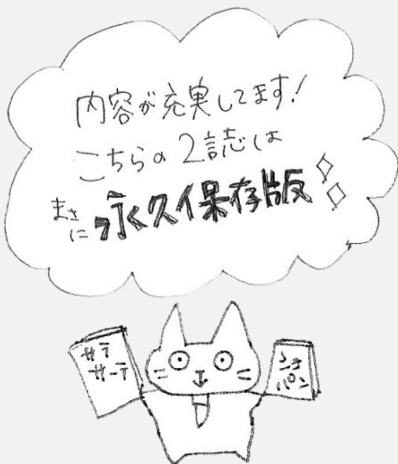 内容が充実してます!
こちらの2誌は
まさに永久保存版
サテ
サーテ
パン